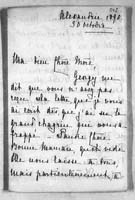 Alexandrie 1895
30 octobre
Ma bien Chère Mère
Georgy me
dit que vous n'avez pas
reçu la lettre que je vous
ai écrit dès que j'ai su le
grand chagrin qui vous a
frappé. Pauvre Chère
Bonne Maman, quel vide
Elle nous laisse à tous,
mais particulièrement à